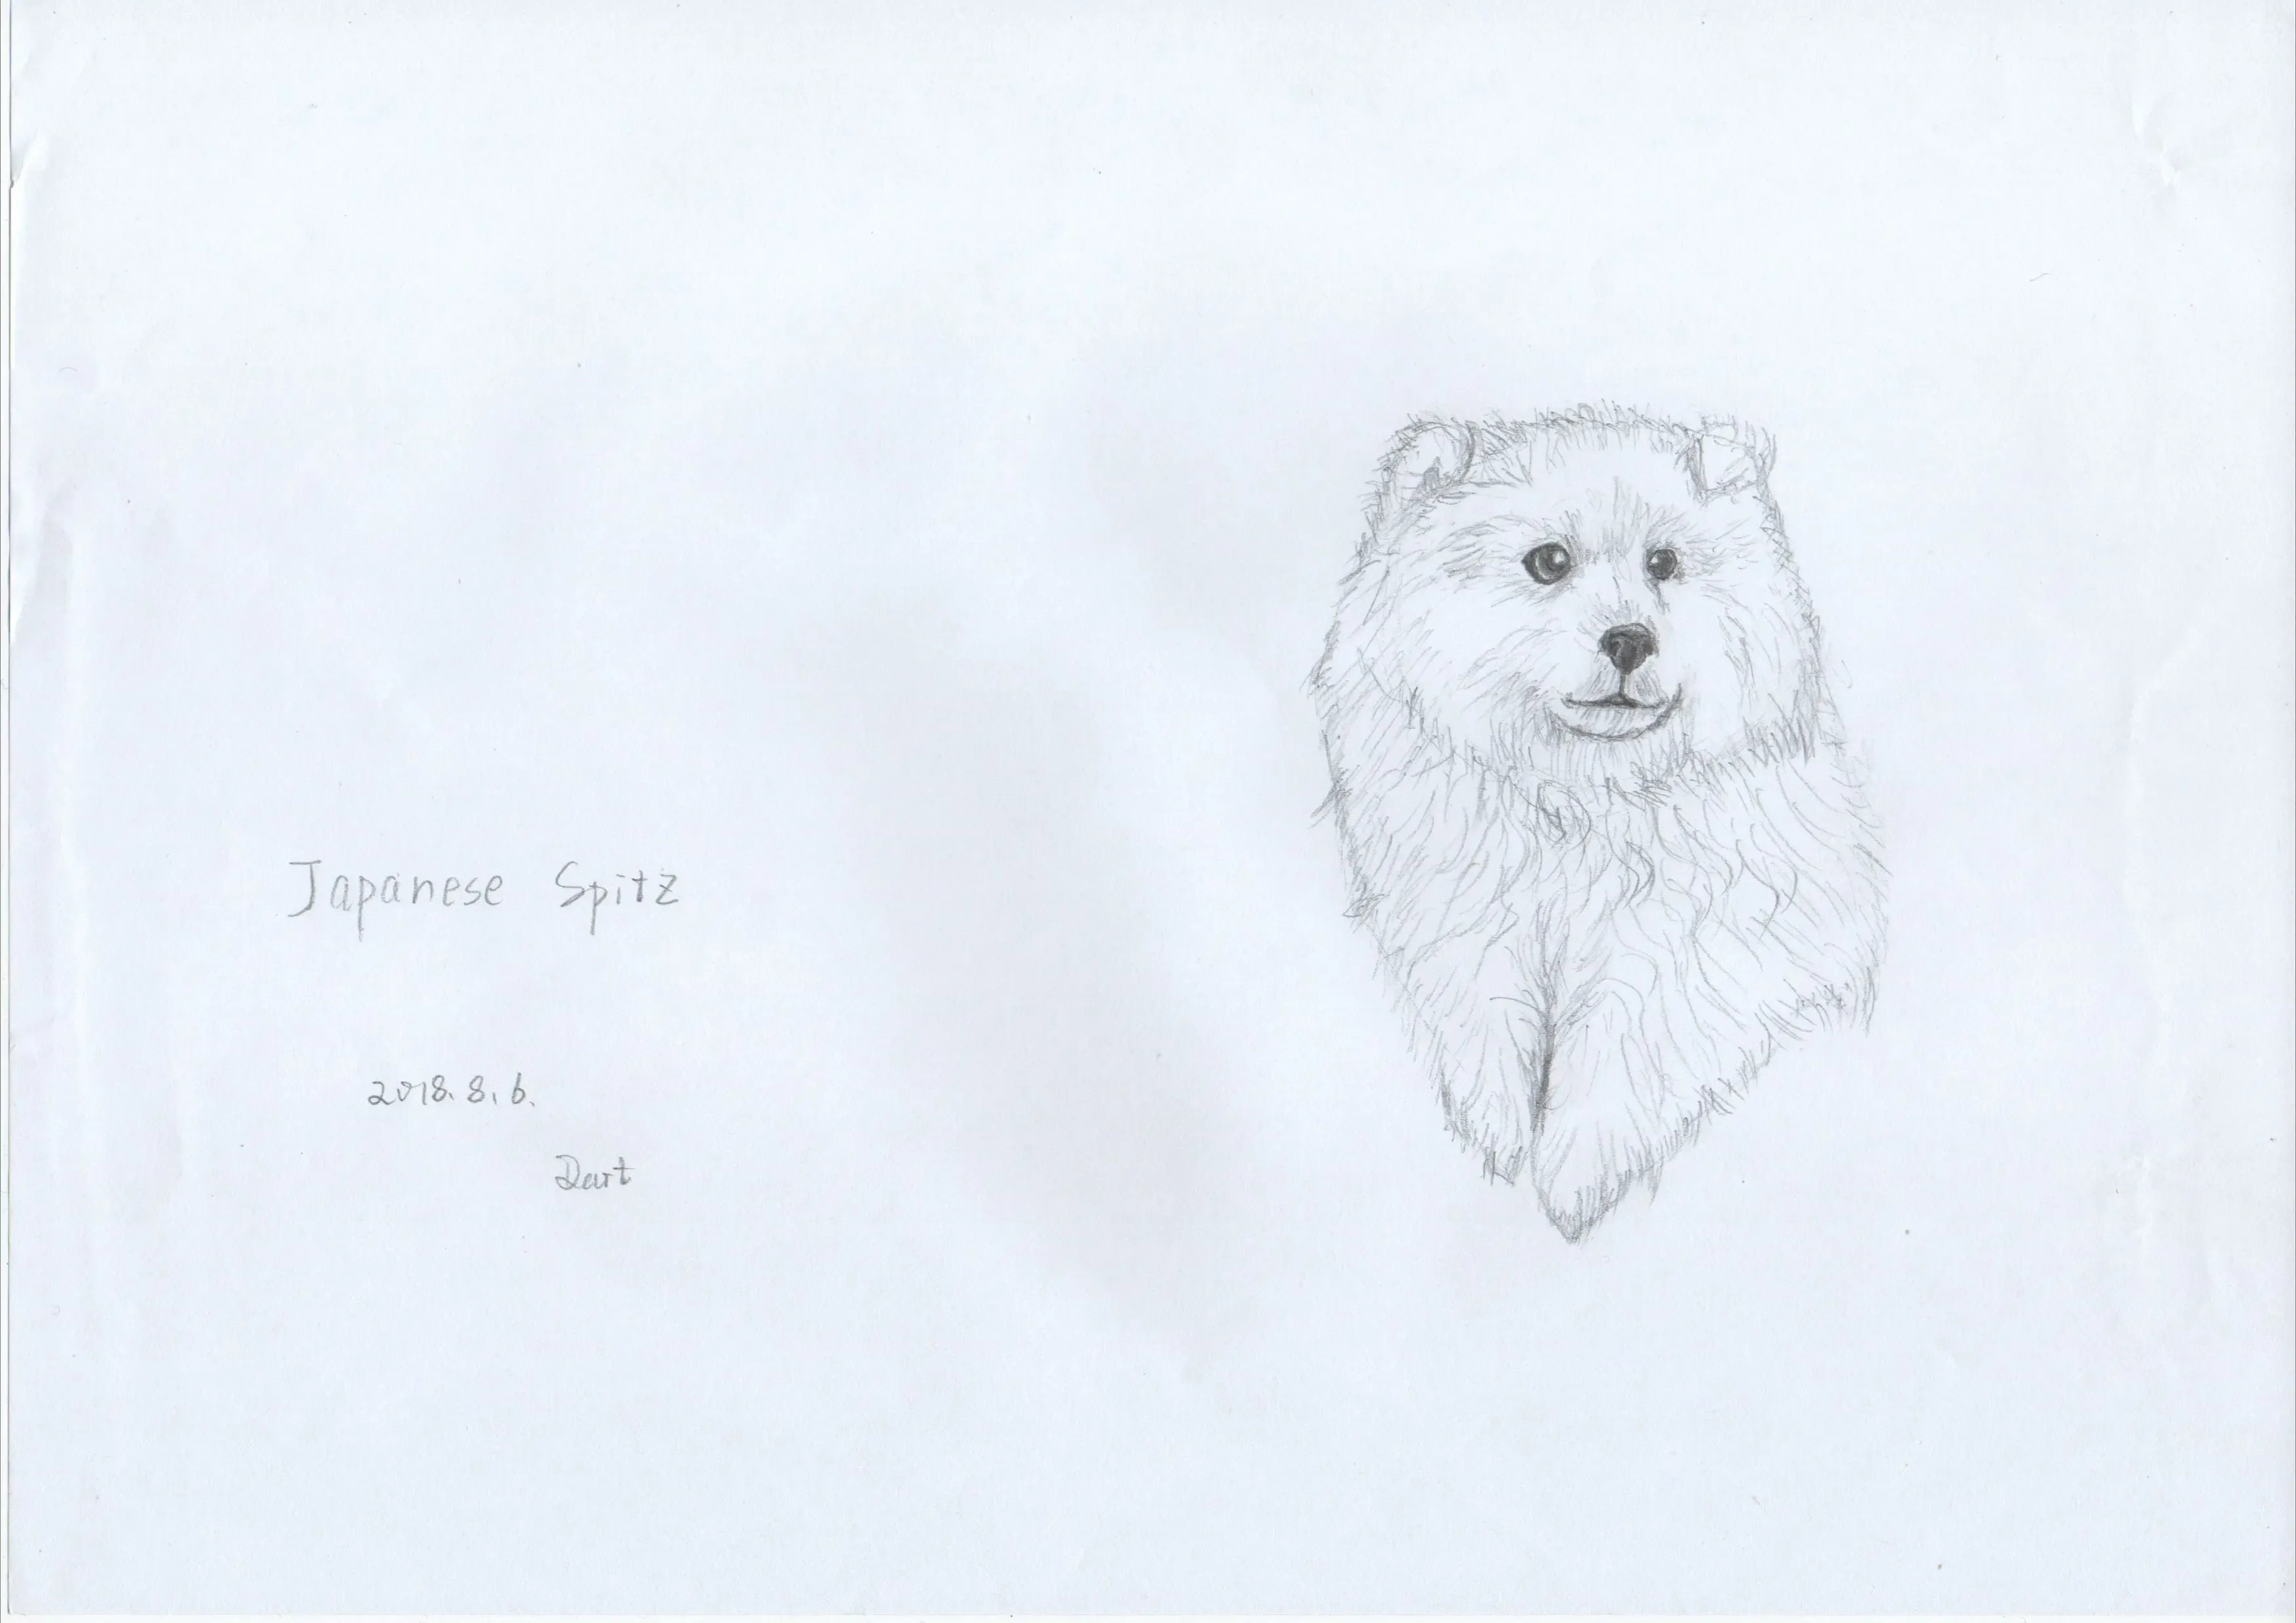 Japanese Spitz
2018. 8. 6.
Dart